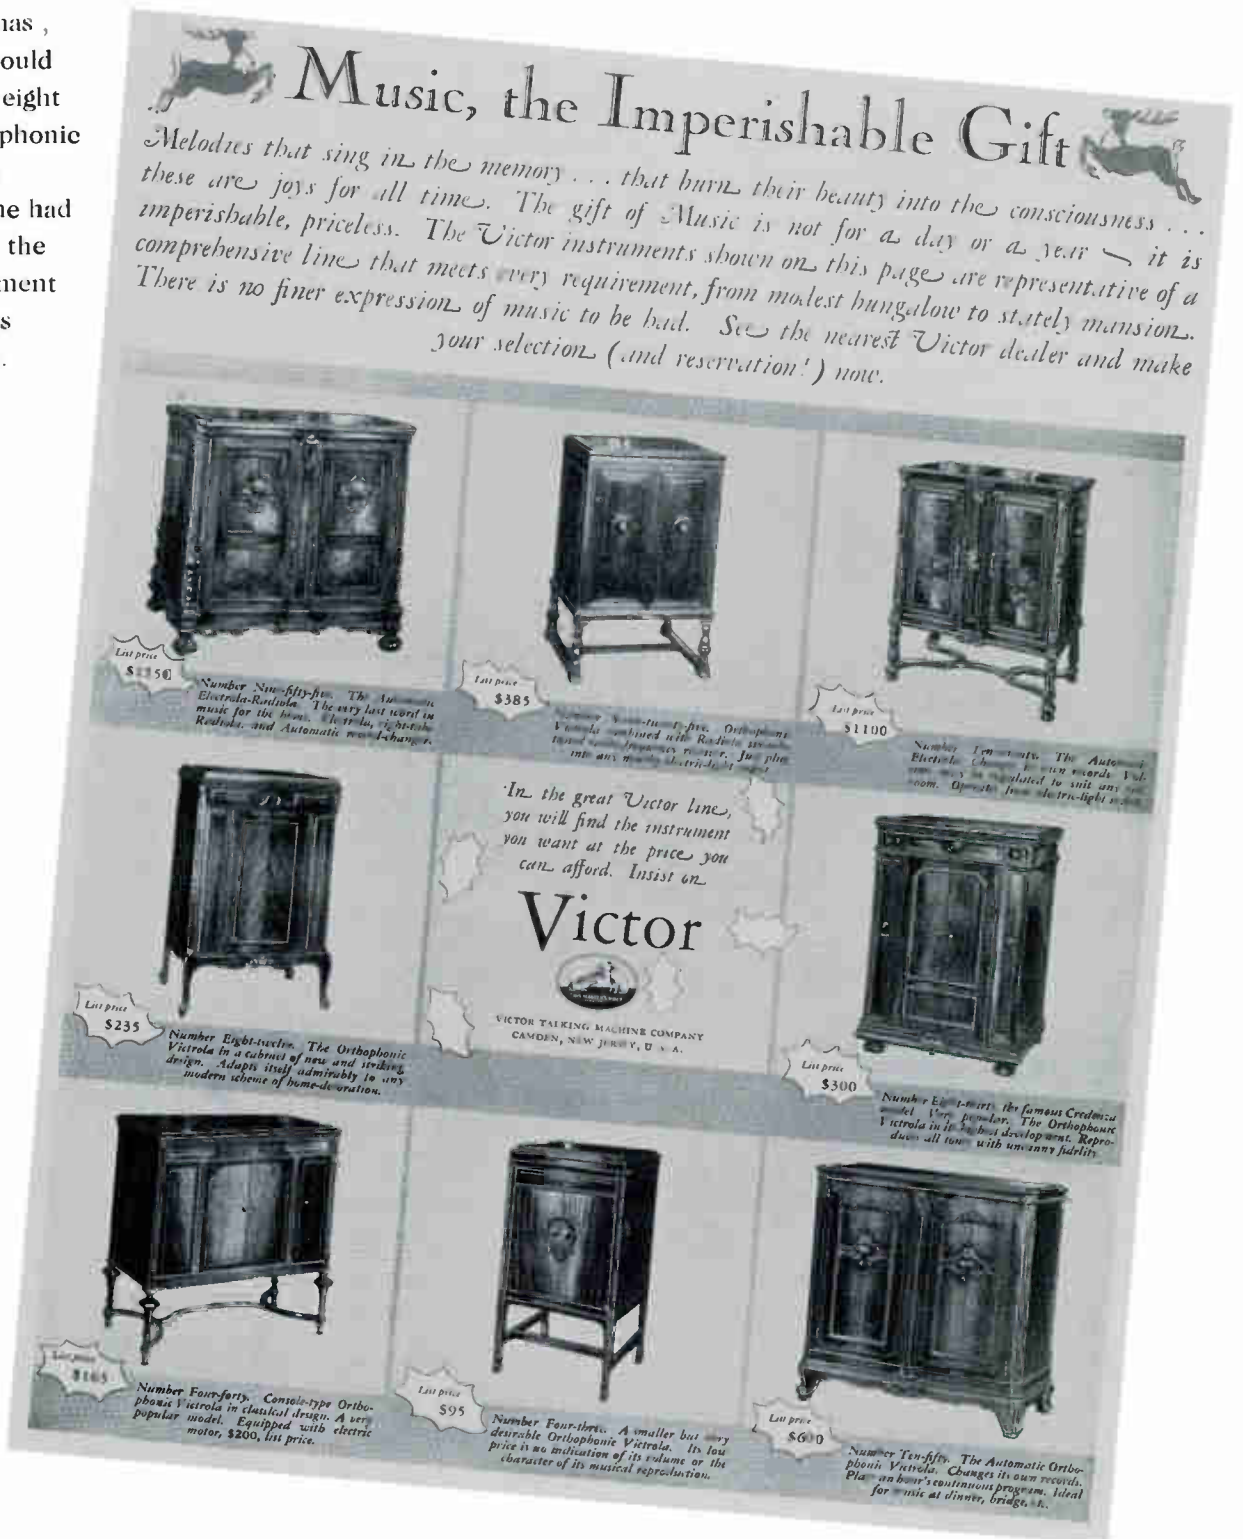 nas ,
ould
eight
phonic
ne had
the
ment
s
.
Music, the Imperishable Gift
Melodies that sing in the memory . . . that burn their beauty into the consciousness . . .
these are joys for all time. The gift of Music is not for a day or a year ~ it is
imperishable, priceless. The Victor instruments shown on this page are representative of a
comprehensive line that meets every requirement, from modest bungalow to stately mansion.
There is no finer expression of music to be had. See the nearest Victor dealer and make
your selection (and reservation!) now.
List price
Number Nine-fifty-five. The Automatic
Electrola-Radiola. The very last word in
music for the home. Electrola, eight-tube
Radiola, and Automatic record-changer.
List price
$385
Orthophonic
Victrola combined with Radiola
Just plug
into any
List price
$1100
Number Ten- The Automatic
Electrola. records.
regulated to suit any
room. Operates from electric-light
List price
$235
Number Eight-twelve. The Orthophonic
Victrola in a cabinet of new and striking
design. Adapts itself admirably to any
modern scheme of home-decoration.
In the great Victor line,
you will find the instrument
you want at the price you
can afford. Insist on
Victor
HIS MASTER'S VOICE
VICTOR TALKING MACHINE COMPANY
CAMDEN, NEW JERSEY, U. S. A.
List price
$300
Number Eight-thirty, the famous Credenza
model. Very popular. The Orthophonic
Victrola in its highest development. Repro-
duces all tones with uncanny fidelity.
List price
Number Four-forty. Console-type Ortho-
phonic Victrola in classical design. A very
popular model. Equipped with electric
motor, $200, list price.
List price
$95
Number Four-three. A smaller but very
desirable Orthophonic Victrola. Its low
price is no indication of its volume or the
character of its musical reproduction.
List price
Number Ten-fifty. The Automatic Ortho-
phonic Victrola. Changes its own records.
Plays an hour's continuous program. Ideal
for music at dinner, bridge, etc.